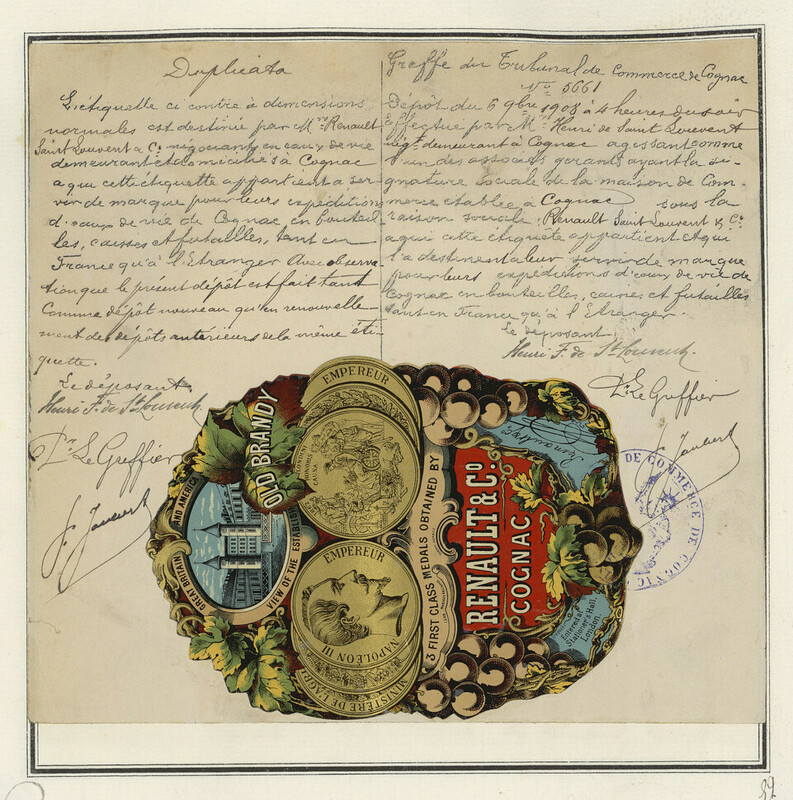 Duplicata
L'étiquette ci contre à dimensions
normales est destinée par Mrs Renault
Saint Louvent & Co. négociants en eaux de vie
demeurant et domiciliés à Cognac
a qui cette étiquette appartient a ser-
vir de marque pour leurs expéditions
d'eaux de vie de Cognac en bouteil-
les, caisses et futailles, tant en
France qu'à l'Etranger Avec observa-
tion que le présent dépôt est fait tant
comme dépôt nouveau qu'en renouvelle-
ment des dépôts antérieurs de la même éti-
quette.
Le déposant
Henri F. de St Louvent
Le Greffier
Greffe du Tribunal de Commerce de Cognac
No. 5661
Dépôt du 6 9bre 1908 à 4 heures du soir
Effectué par Mr Henri de Saint Louvent
nég. demeurant à Cognac agissant comme
l'un des associés gérants ayant la si-
gnature sociale de la maison de Com-
merce établie à Cognac sous la
raison sociale, Renault Saint Louvent & Co.
a qui cette étiquette appartient et qui
l'a destine à leur servir de marque
pour leurs expéditions d'eaux de vie de
Cognac en bouteilles, caisses et futailles
tant en France qu'à l'Etranger.
Le déposant,
Henri F. de St Louvent.
Le Greffier
OLD BRANDY
GREAT BRITAIN
AND AMERICA
VIEW OF THE ESTABLIS
EMPEREUR
EMPEREUR
NAPOLEON III
MINISTÈRE DE L'AGRI
3 FIRST CLASS MEDALS OBTAINED BY
RENAULT & Co.
COGNAC
Entered at
Stationer's Hall,
London.
DE COMMERCE DE COGNAC